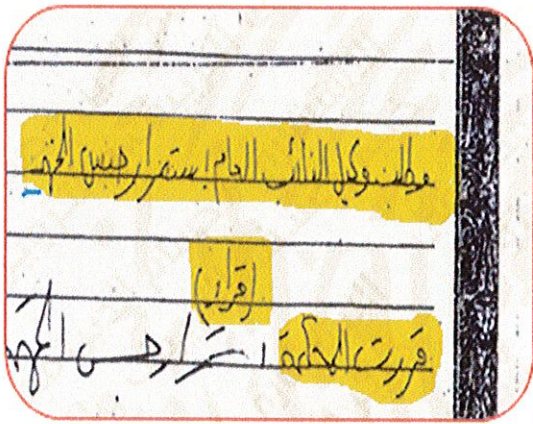 وطلب وكيل النائب العام استمرار حبس المتهم
(قرار)
قررت المحكمة استمرار حبس المتهم